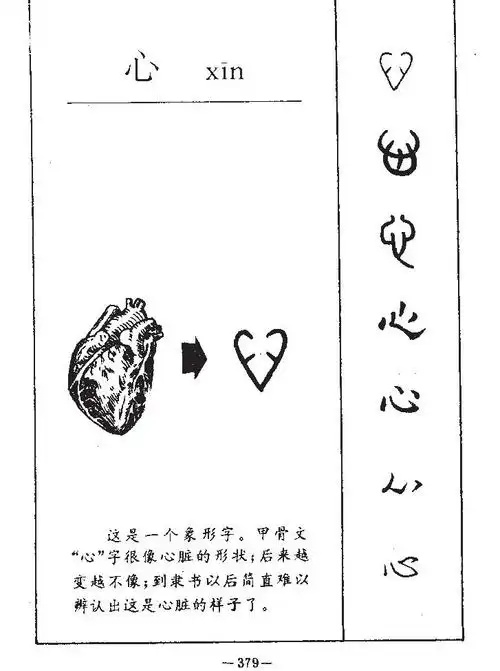 心 xīn
这是一个象形字。甲骨文
“心”字很像心脏的形状;后来越
变越不像;到隶书以后简直难以
辨认出这是心脏的样子了。
心
心
心
心
—379—